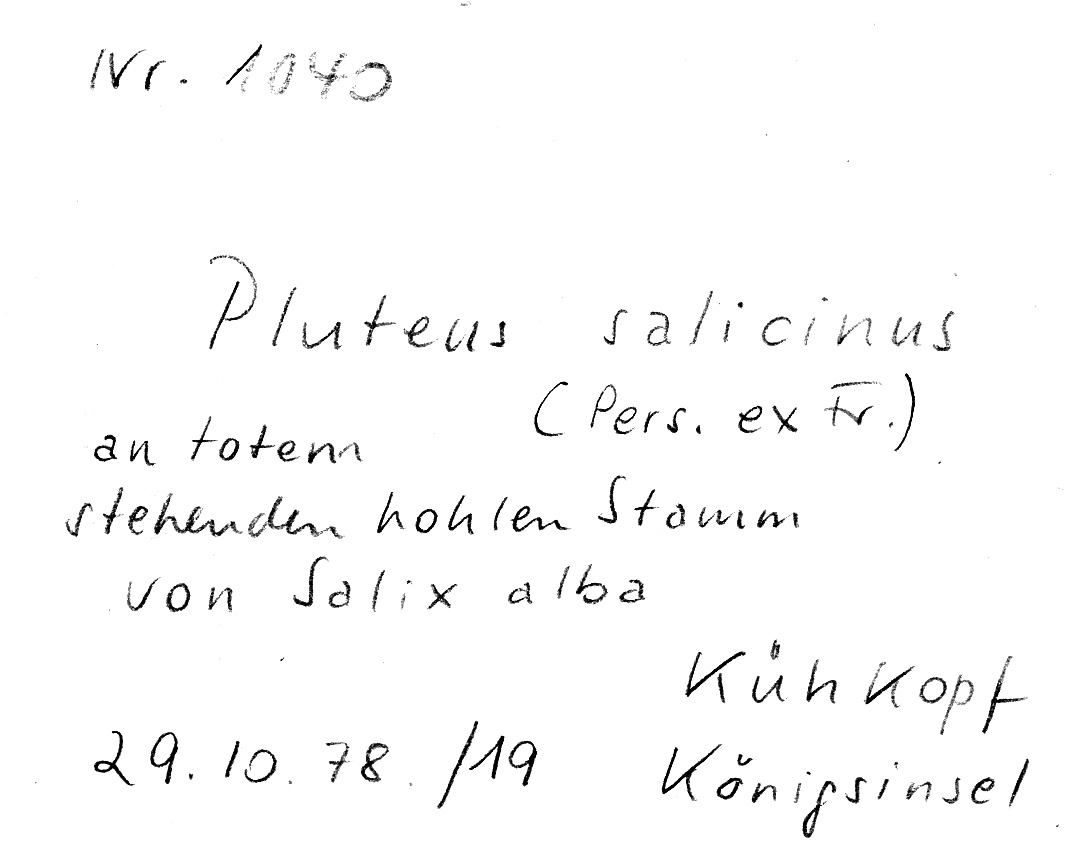 Nr. 1040
Pluteus salicinus
(Pers. ex Fr.)
an totem
stehenden hohlen Stamm
von Salix alba
Kühkopf
29.10.78./19 Königsinsel